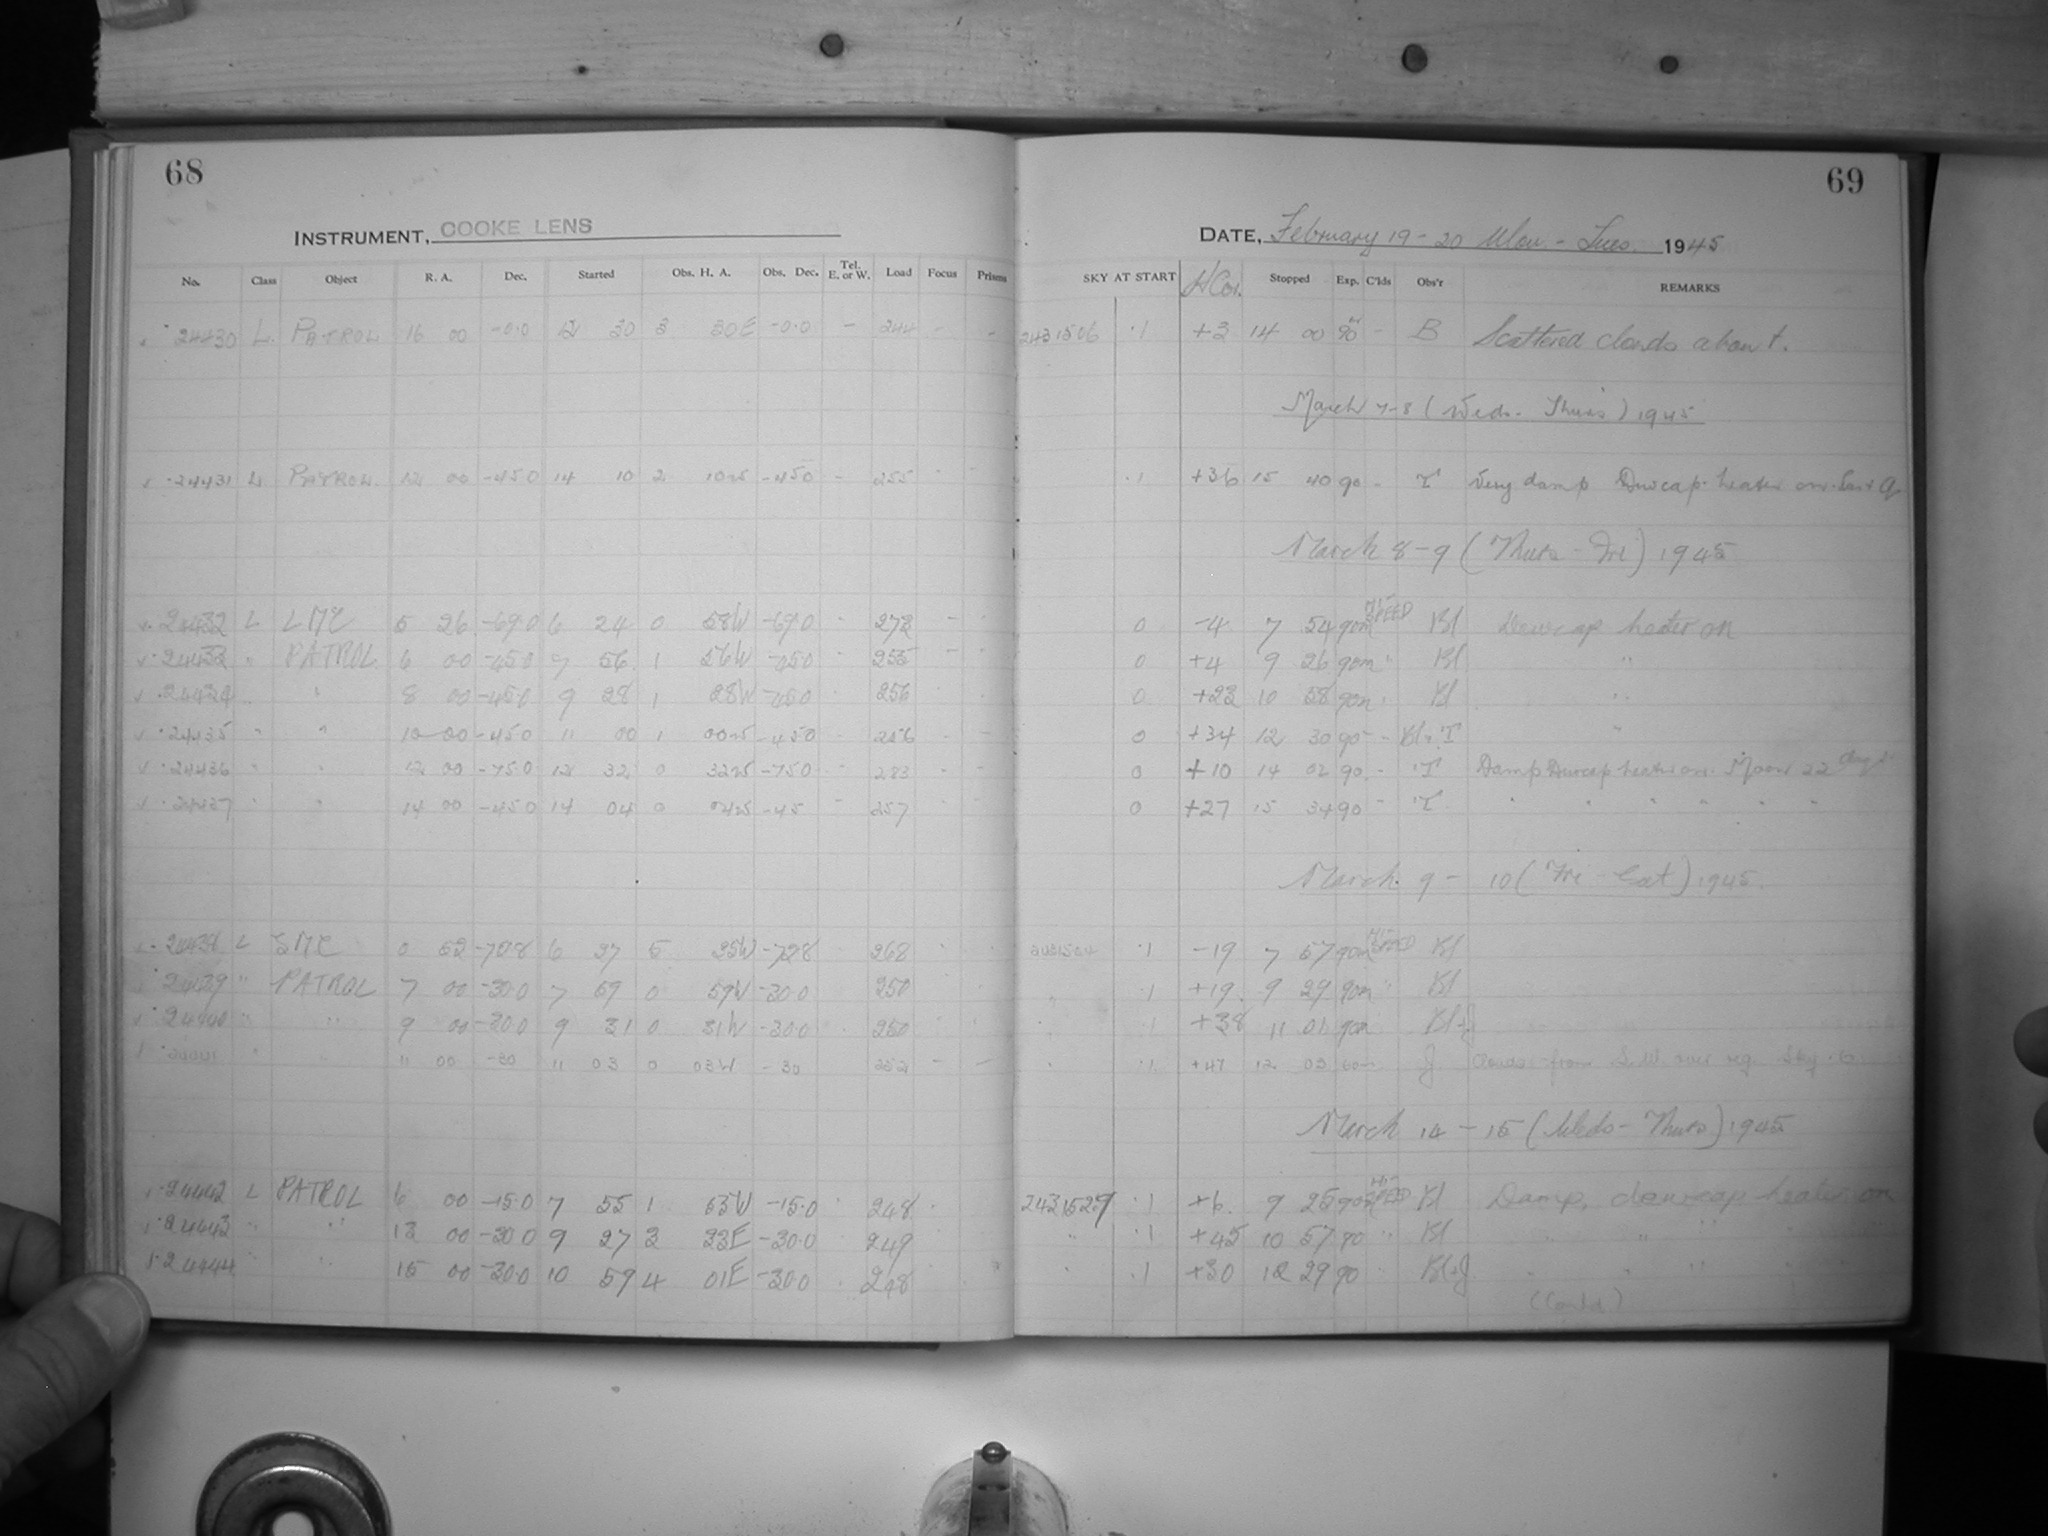 68
INSTRUMENT, COOKE LENS
No. Class Object R. A. Dec. Started Obs. H. A. Obs. Dec. Tel. E. or W. Load Focus Prisms
24430 L. PATROL 16 00 -0.0 12 30 3 30E -0.0 - 244 - -
24431 L PATROL. 12 00 -45.0 14 10 2 10W -45.0 - 255 - -
24432 L LMC 5 26 -69.0 6 24 0 58W -69.0 - 272
24433 " PATROL 6 00 -45.0 7 56 1 56W -45.0 255
24434 " " 8 00 -45.0 9 28 1 28W -45.0 256
24435 " " 10 00 -45.0 11 00 1 00W -45.0 256
24436 " " 12 00 -75.0 12 32 0 32W -75.0 283
24437 " " 14 00 -45.0 14 04 0 04W -45 257
24438 L SMC 0 52 -72.8 6 27 5 35W -72.8 268
24439 " PATROL 7 00 -30.0 7 59 0 59W -30.0 250
24440 " " 9 00 -30.0 9 31 0 31W -30.0 250
24441 " " 11 00 -30 11 03 0 03W -30 252 - -
24442 L PATROL 6 00 -15.0 7 55 1 55W -15.0 248
24443 " " 13 00 -30.0 9 27 3 33E -30.0 249
24444 " " 15 00 -30.0 10 59 4 01E -30.0 248
69
DATE, February 19-20 Mon. - Tues. 1945
SKY AT START H Cor. Stopped Exp. C'lds Obs'r REMARKS
2431506 .1 +3 14 00 90m - B Scattered clouds about.
March 7-8 (Weds. Thurs) 1945
.1 +36 15 40 90 - T Very damp Dewcap heater on.
March 8-9 (Thurs - Fri) 1945
0 -4 7 54 90m HI-SPEED Bl Dewcap heater on
0 +4 9 26 90m " Bl "
0 +23 10 58 90m " Bl "
0 +34 12 30 90 - Bl. T "
0 +10 14 02 90 - T Damp Dewcap heater on. Moon 22 days
0 +27 15 34 90 - T " " " " " "
March. 9 - 10 (Fri - Sat) 1945
.1 -19 7 57 90m HI-SPEED Bl
" .1 +19 9 29 90m " Bl
" .1 +38 11 01 90m Bl+J
" .1 +47 12 03 60m J Clouds from S.W. over reg. Sky .6
March 14 - 15 (Weds - Thurs) 1945
2431529 .1 +6 9 25 90m HI-SPEED Bl Damp, dewcap heater on
" .1 +45 10 57 90 " Bl " " "
" .1 +30 12 29 90 " Bl+J " " "
(Contd)